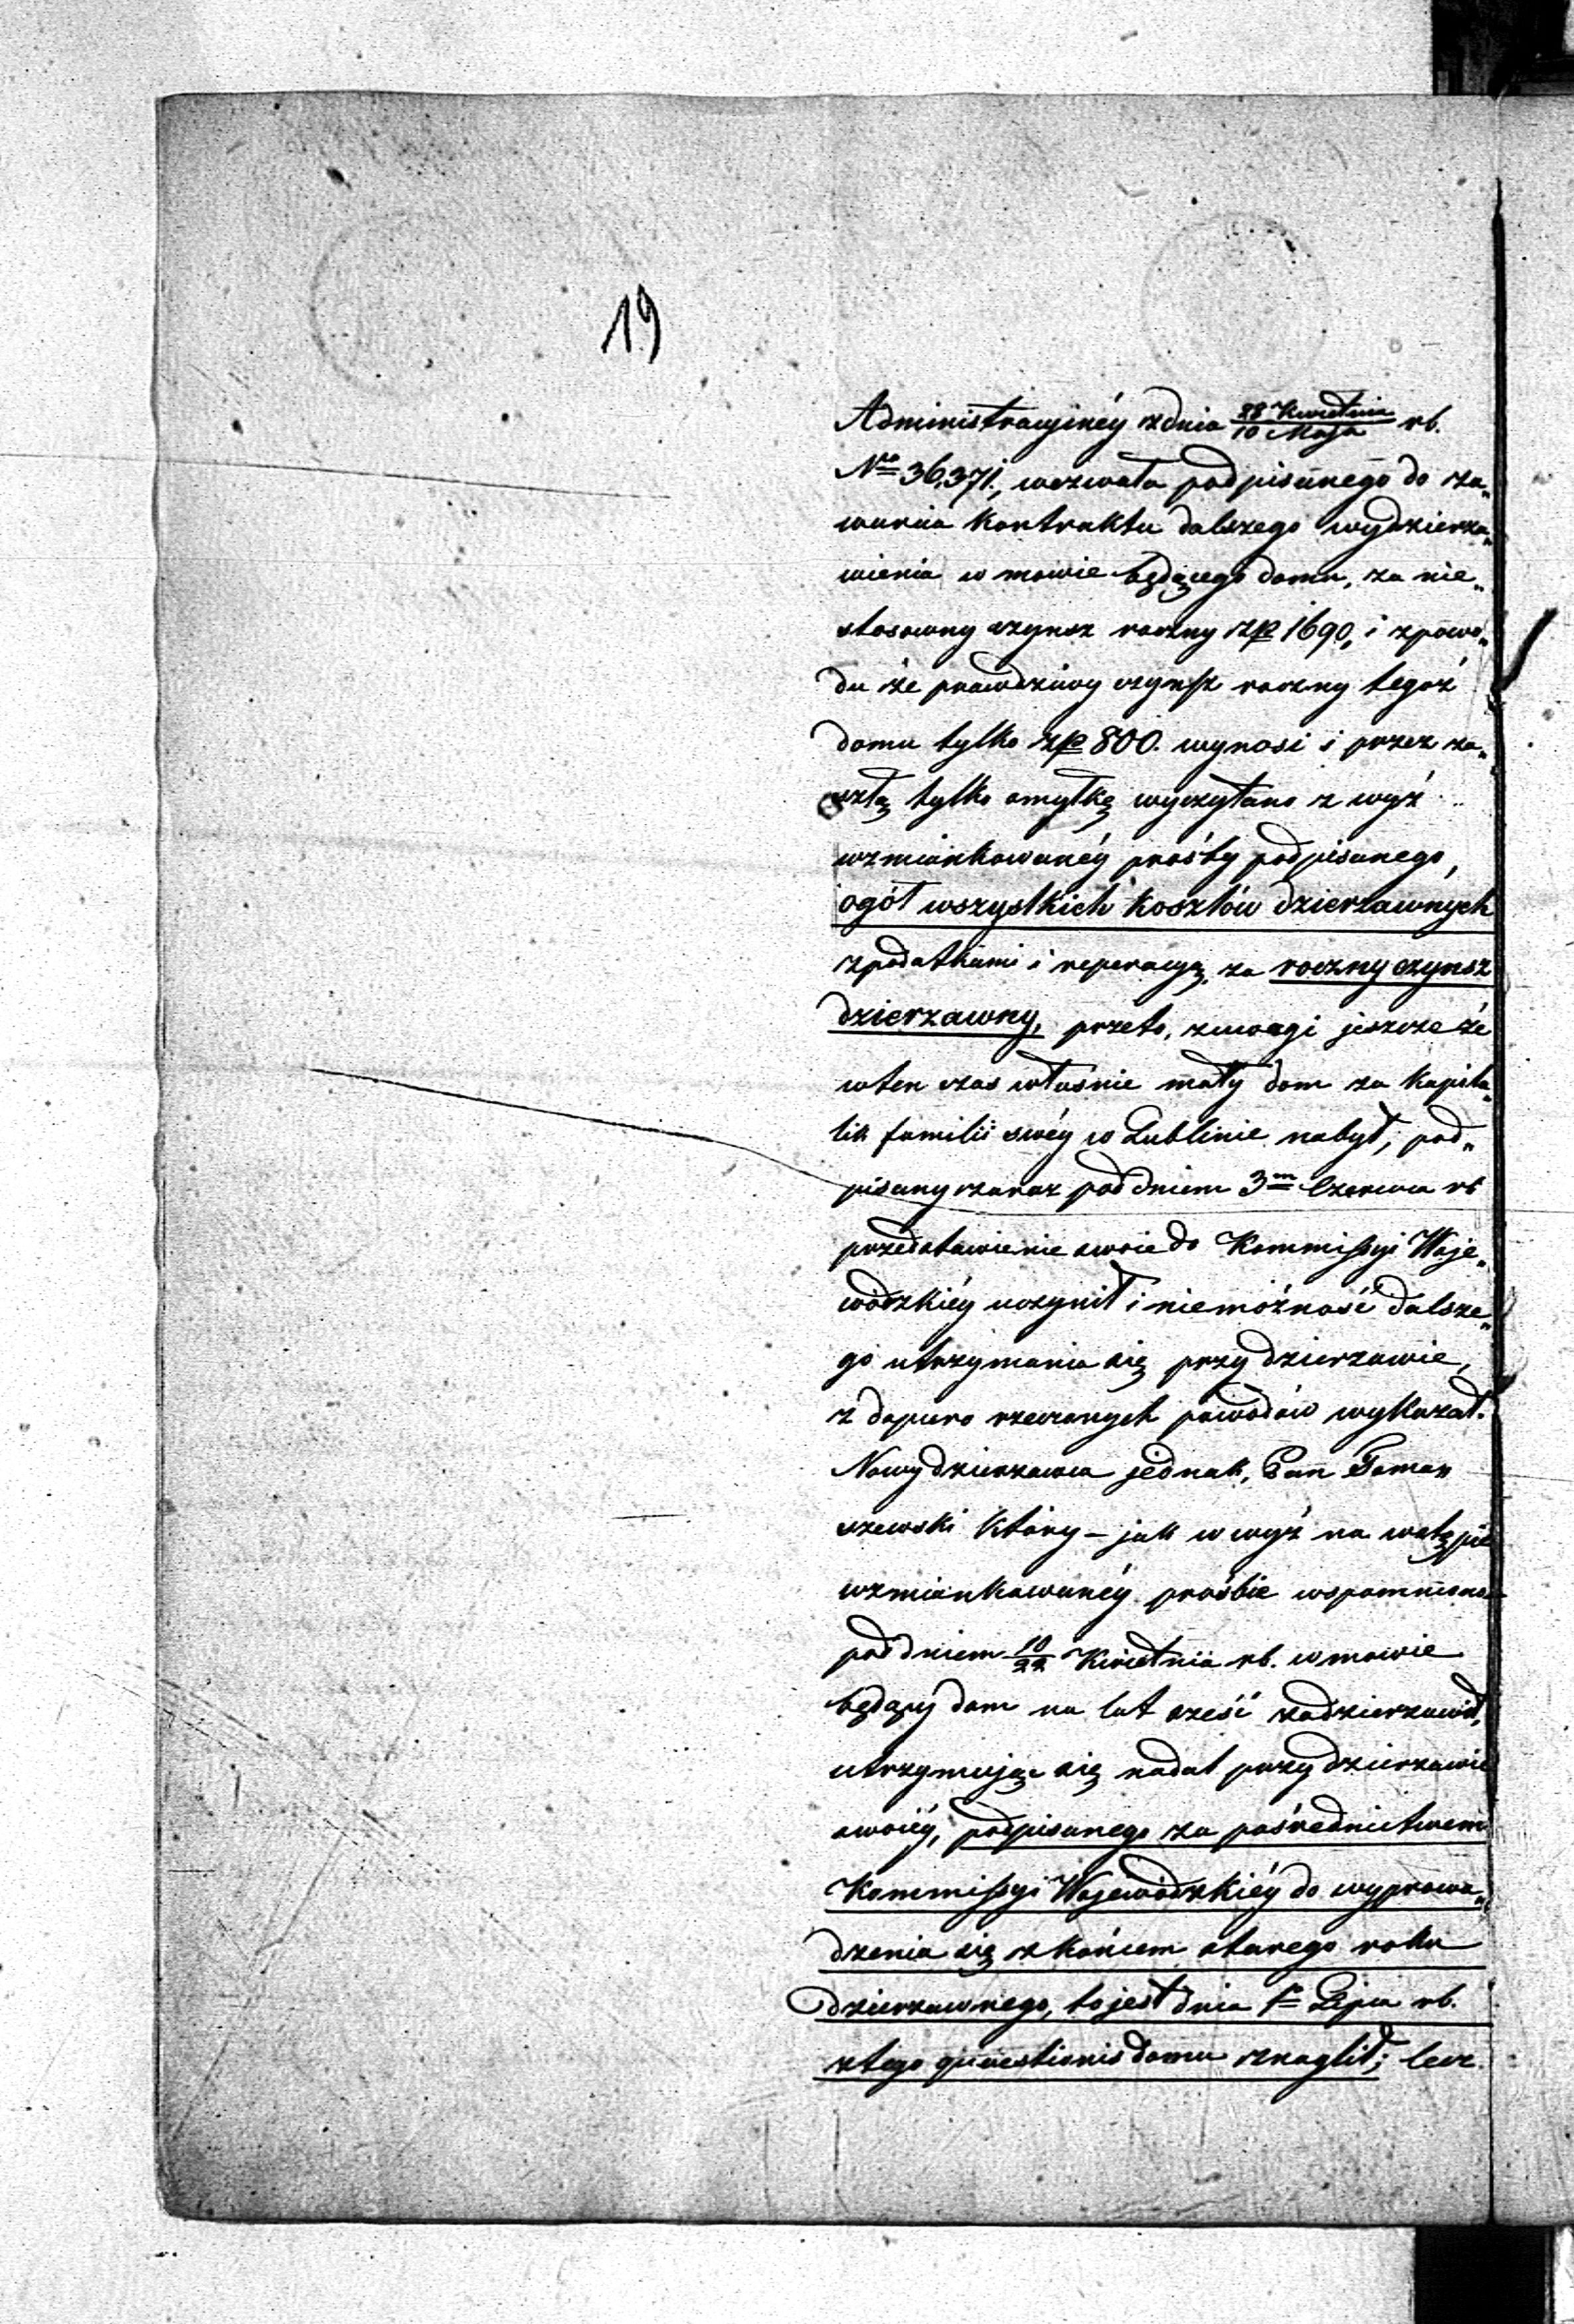 19
Administracyjnéy z dnia 28 Kwietnia / 10 Maja rb.
No 36,371., wezwała podpisanego do za„
warcia kontraktu dalszego wydzierża„
wienia w mowie będącego domu, za nie„
stosowny czynsz roczny złp 1690, i z powo„
du że prawdziwy czynsz roczny tegoż
domu tylko złp 800. wynosi i przez za„
szłą tylko omyłkę wyczytano z wyż
wzmiankowanéy prośby podpisanego,
ogół wszystkich kosztów dzierzawnych
z podatkami i reperacyą, za roczny czynsz
dzierzawny, przeto, z uwagi jeszcze że
w ten czas właśnie mały dom za kapita„
lik familii swéy w Lublinie nabył, pod„
pisany zaraz pod dniem 3m Czerwca rb
przedstawienie swoie do Kommissyi Woje„
wódzkiéy uczynił i niemożność dalsze„
go utrzymania się przy dzierzawie,
z dopiero rzeczonych powodów wykazał.
Nowy dzierzawca jednak, Pan Toma„
szewski który – jak w wyż na wstępie
wzmiankowanéy prośbie wspomniono
pod dniem 10/22 Kwietnia rb. w mowie
będący dom na lat sześć zadzierzawił,
utrzymując się nadal przy dzierzawie
swoiéy, podpisanego za pośrednictwem
Kommissyi Wojewódzkiéy do wyprowa„
dzenia się z końcem starego roku
dzierzawnego, to jest dnia 1o Lipca rb.
z tego quaestionis domu znaglił; lecz